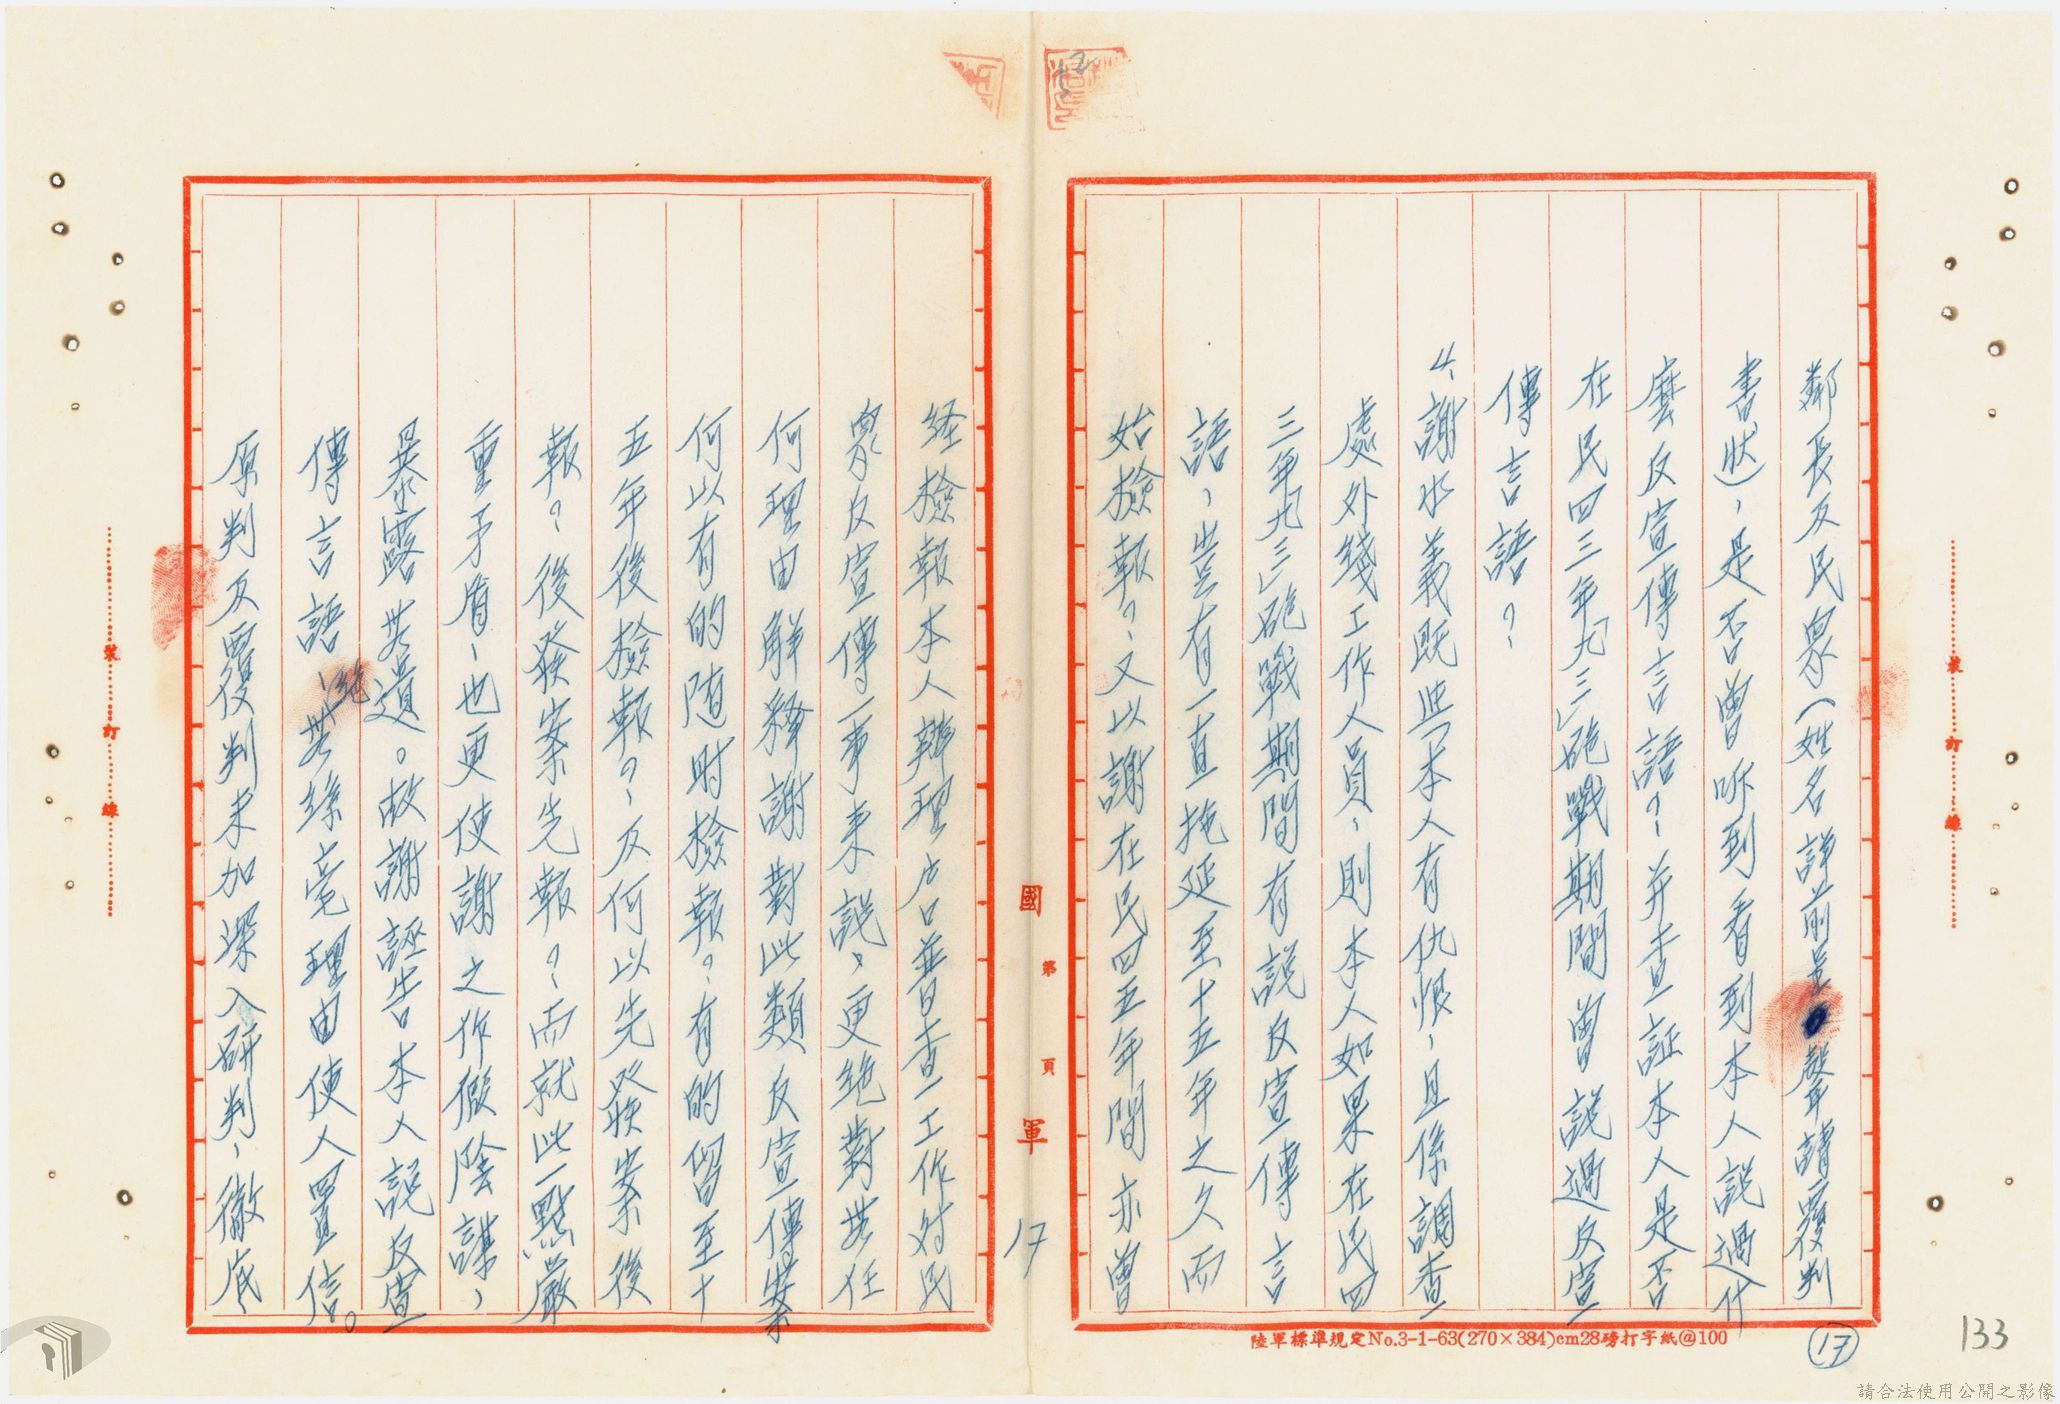 鄰長及民眾(姓名詳前呈聲請覆判
書狀)，是否曾听到看到本人說過什
麼反宣傳言語？，并查証本人是否
在民四三年九三砲戰期間曾說過反宣
傳言語？
4、謝水義既與本人有仇恨，且係調查
處外綫工作人員，則本人如果在民四
三年九三砲戰期間有說反宣傳言
語，豈有一直拖延至十五年之久而
始檢報？，又以謝在民四五年間亦曾
经檢報本人辦理戶口普查工作对民
眾反宣傳一事来說，更绝對無任
何理由解釋謝對此類反宣傳案
何以有的随时檢報？有的留至十
五年後檢報？，及何以先發案後
報？後發案先報？，而就此一點嚴
重矛盾，也更使謝之作假陰謀，
暴露無遺。故謝誣告本人說反宣
傳言語，绝無絲毫理由使人置信。
原判及覆判未加深入研判，徹底
國軍
第頁
17
裝訂線
裝訂線
陸軍標準規定No.3-1-63(270×384)cm28磅打字紙@100
17
133
請合法使用公開之影像